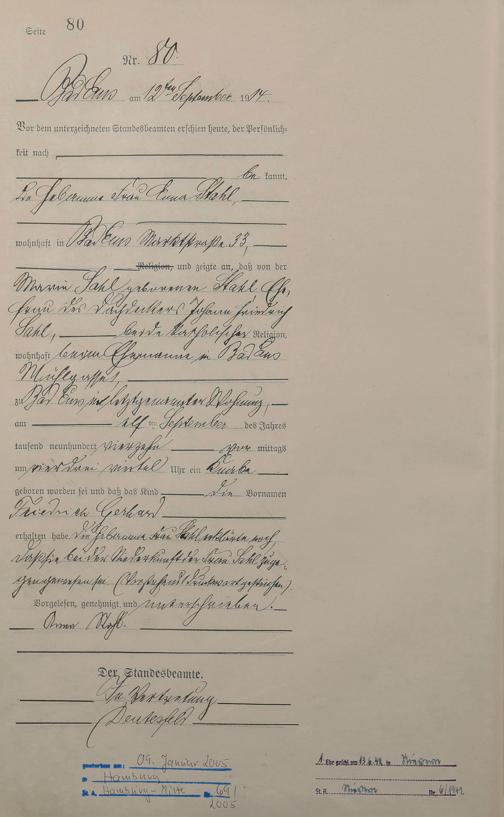 Seite 80
Nr. 80.
Bad Ems am 12ten September 1914.
Vor dem unterzeichneten Standesbeamten erschien heute, der Persönlich-
keit nach
be kannt,
die Hebamme Frau Anna Stahl,
wohnhaft in Bad Ems Marktstraße 33,
Religion, und zeigte an, daß von der
Marie Sahl geborenen Stahl Ehe-
frau des Dachdeckers Johann Friedrich
Sahl, beide katholischer Religion,
wohnhaft beim Ehemanne in Bad Ems
Mühlgasse
zu Bad Ems in letztgenannter Wohnung,
am elf ten September des Jahres
tausend neunhundert vierzehn vor mittags
um vierdrei viertel Uhr ein Knabe
geboren worden sei und daß das Kind die Vornamen
Friedrich Gerhard
erhalten habe. Die Hebamme Frau Stahl erklärte noch,
daß sie bei der Niederkunft der Frau Sahl zuge-
gen gewesen sei. (Vorstehend Druckwort gestrichen).
Vorgelesen, genehmigt und unterschrieben.
Anna Stahl.
Der Standesbeamte.
In Vertretung
gestorben am: 04. Januar 2005
in Hamburg
St. A. Hamburg-Mitte Nr. 69/
2005
1. Ehe geschl. am 13.6.42 in
St. A. Nr. 6/1942